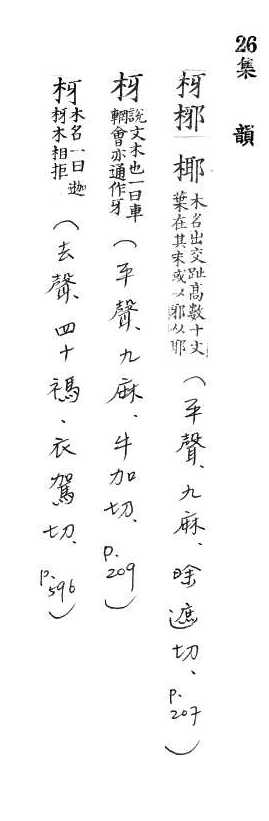 26 集 韻
枒 椰 木名出交趾高數十丈葉在其末或从邪从耶 (平聲、九麻、遮切、p.207)
枒 說文木也一曰車輞會亦通作牙 (平聲、九麻、牛加切、p.209)
枒 木名一曰迦枒木相拒 (去聲、四十禡、衣駕切、p.596)